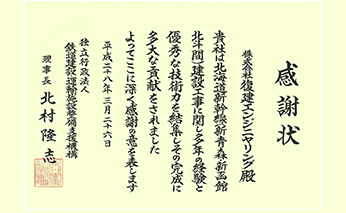 感謝状
株式会社復建エンジニヤリング殿
貴社は北海道新幹線新青森新函館
北斗間建設工事に関し多年の経験と
優秀な技術力を結集しその完成に
多大な貢献をされました
よってここに深く感謝の意を表します
平成二十八年三月二十六日
独立行政法人
鉄道建設・運輸施設整備支援機構
理事長 北村隆志